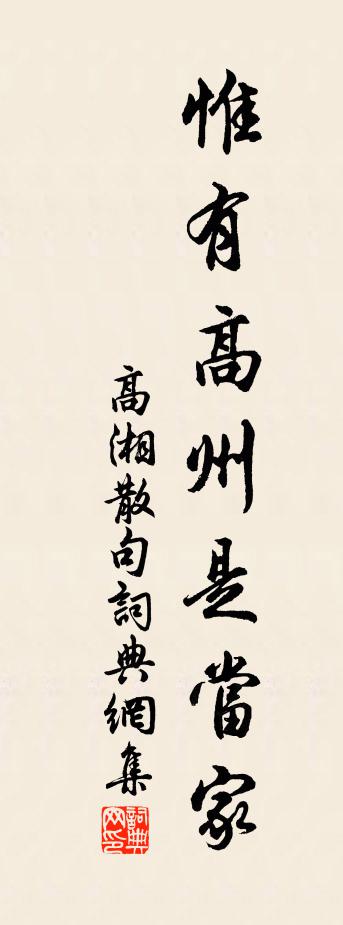 惟有高州是當家
高湘散句詞典網集
詞典網印